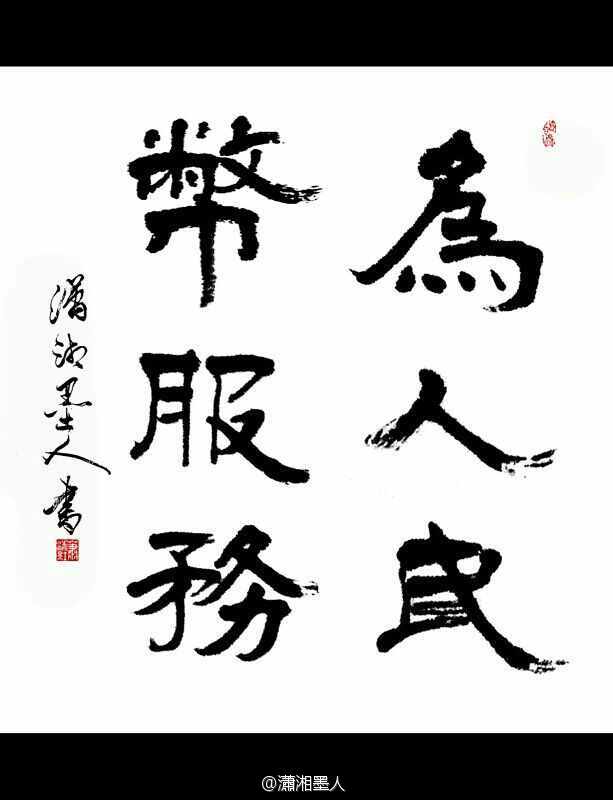 為人民
幣服務
瀟湘墨人書
@瀟湘墨人